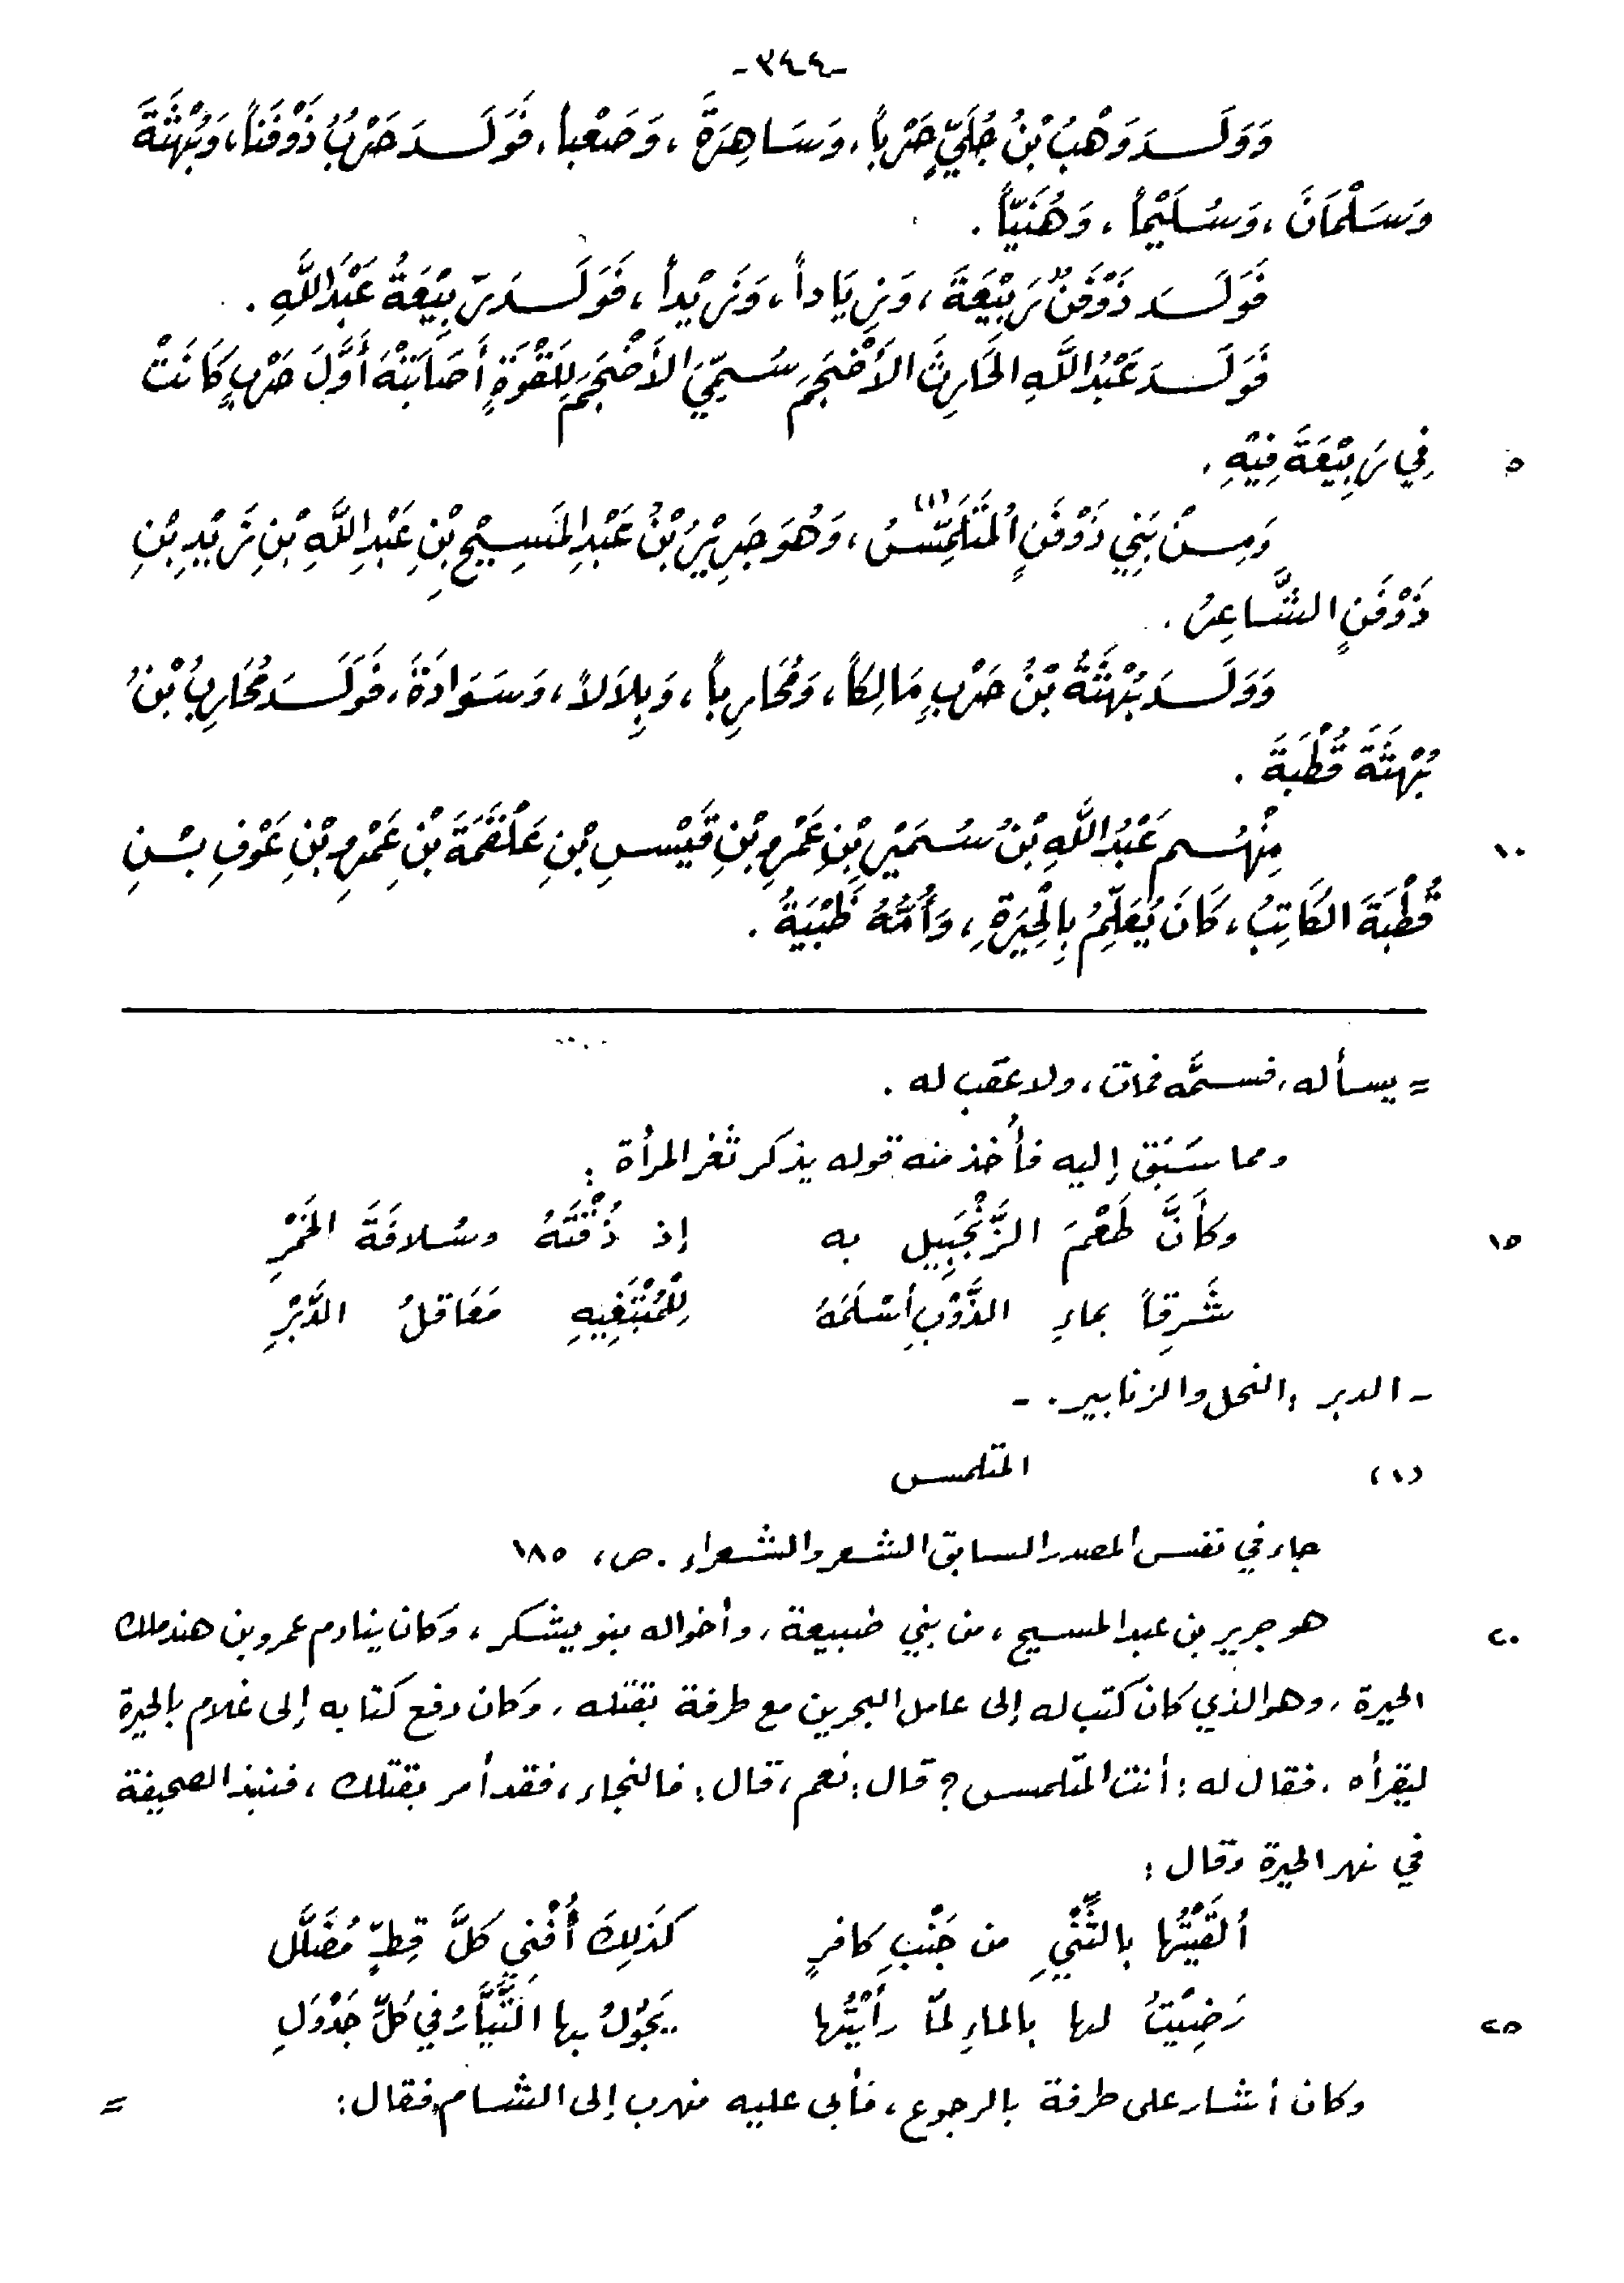 -٣٤٤-
وَوَلَدَ وَهْبُ بْنُ جُلَيٍّ حَرْباً، وَسَاهِرَةَ، وَصَعْباً، فَوَلَدَ حَرْبُ ذَوْفَناً، وَبُهْثَةَ
وَسَلْمَانَ، وَسُلَيْماً، وَهُنَيّاً.
فَوَلَدَ ذَوْفَنٌ رَبِيْعَةَ، وَزِيَاداً، وَزَيْداً، فَوَلَدَ رَبِيْعَةُ عَبْدَاللَّهِ.
فَوَلَدَ عَبْدُاللَّهِ الحَارِثَ الأَضْجَمَ سُمِّيَ الأَضْجَمَ لِلَقْوَةٍ أَصَابَتْهُ أَوَّلَ حَرْبٍ كَانَتْ
فِي رَبِيْعَةَ فِيْهِ. ٥
وَمِنْ بَنِي ذَوْفَنٍ المُتَلَمِّسُ(١)، وَهُوَ جَرِيْرُ بْنُ عَبْدِ المَسِيْحِ بْنِ عَبْدِ اللَّهِ بْنِ زَيْدِ بْنِ
ذَوْفَنٍ الشَّاعِرُ.
وَوَلَدَ بُهْثَةُ بْنُ حَرْبٍ مَالِكاً، وَمُحَارِباً، وَبِلاَلاً، وَسَوَادَةَ، فَوَلَدَ مُحَارِبُ بْنُ
بُهْثَةَ قُطْبَةَ.
مِنْهُم عَبْدُ اللَّهِ بْنُ سُمَيْرِ بْنِ عَمْرِو بْنِ قَيْسِ بْنِ عَلْقَمَةَ بْنِ عَمْرِو بْنِ عَوْفِ بْنِ ١٠
قُطْبَةَ الكَاتِبُ، كَانَ يُعَلِّمُ بِالْحِيَرةِ، وَأُمُّهُ ظَبْيَةُ.
= يسأله، فسمَّه فمات، ولا عقب له.
ومما سَبَقَ إليه فأُخذ منه قوله يذكر ثَغْر المرأة:
وكأَنَّ طَعْمَ الزَّنْجَبِيلِ به إذ ذُقْتَهُ وسُلافَةَ الخَمْرِ ١٥
شَرِقاً بماءِ الذَّوْبِ أسْلَمَهُ لِلْمُبْتَغِيهِ مَعَاقلُ الدَّبْرِ
- الدبر: النحل والزنابير. -
(١) المتلمس
جاء في نفس المصدر السابق الشعر والشعراء. ص، ١٨٥
هو جرير بن عبد المسيح، من بني ضبيعة، وأخواله بنو يشكر، وكان ينادم عمرو بن هند ملك ٢٠
الحيرة، وهو الذي كان كتب له إلى عامل البحرين مع طرفة بقتله، وكان دفع كتابه إلى غلام بالحيرة
ليقرأه، فقال له: أنت المتلمس؟ قال: نعم، قال: فالنجاء، فقد أمر بقتلك، فنبذ الصحيفة
في نهر الحيرة وقال:
ألقَيْتُها بالثِّنْيِ من جَنْبِ كافرٍ كَذلِكَ أُفْني كلَّ قِطٍّ مُضَلَّل
رَضِيْتُ لها بالماءِ لمّا رأَيْتُها يَجُوْلُ بها التَّيَّارُ في كُلِّ جَدْوَلِ ٢٥
وكان أشار على طرفة بالرجوع، فأبى عليه فهرب إلى الشام، فقال: =